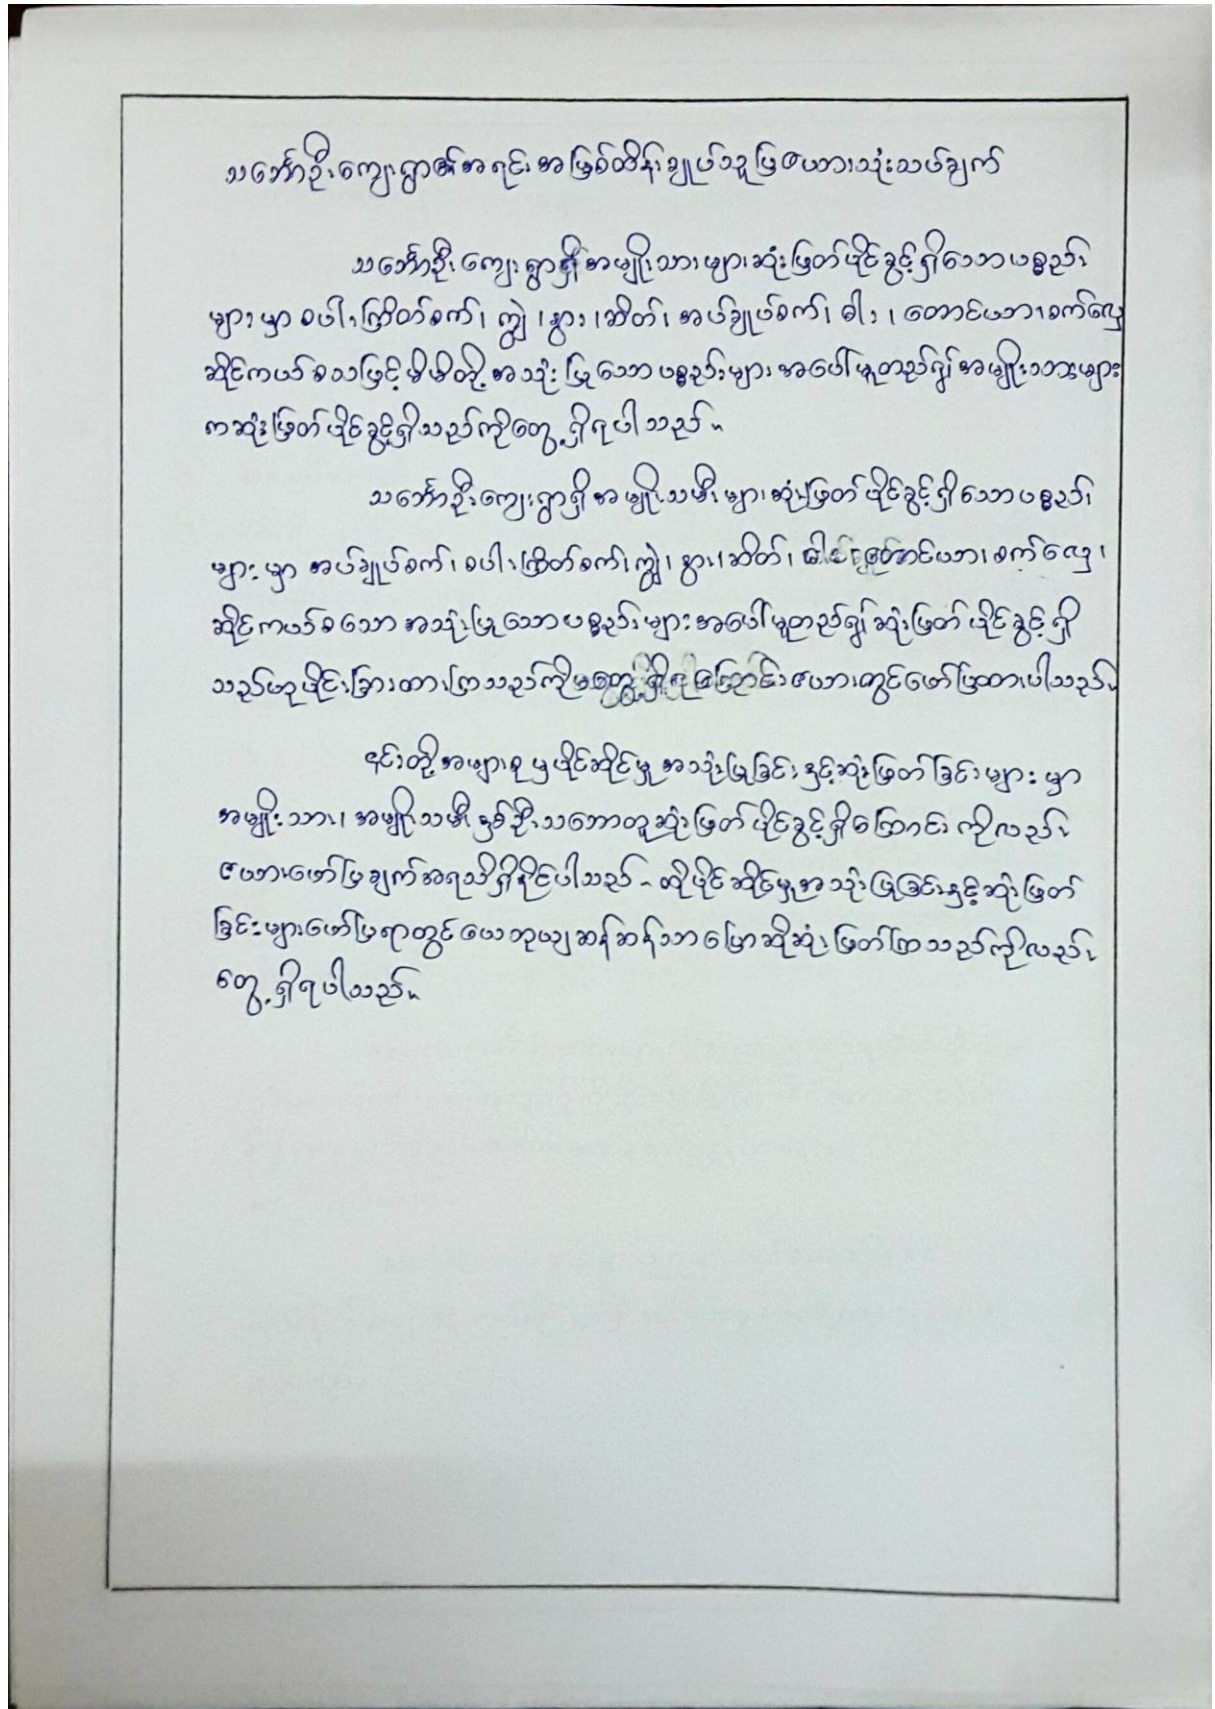 သင်္ဘောဦးကျေးရွာ၏အရင်းအမြစ်ထိန်းချုပ်သူပြဇယားသုံးသပ်ချက်
သင်္ဘောဦးကျေးရွာရှိအမျိုးသားများဆုံးဖြတ်ပိုင်ခွင့်ရှိသောပစ္စည်း
များမှာ စပါးကြိတ်စက်၊ ကျွဲ၊ နွား၊ ဆိတ်၊ အပ်ချုပ်စက်၊ ဓါး၊ တောင်ယာ၊ စက်လှေ
ဆိုင်ကယ်စသဖြင့်မိမိတို့အသုံးပြုသောပစ္စည်းများအပေါ်မူတည်၍အမျိုးသားများ
ကဆုံးဖြတ်ပိုင်ခွင့်ရှိသည်ကိုတွေ့ရှိရပါသည်။
သင်္ဘောဦးကျေးရွာရှိအမျိုးသမီးများဆုံးဖြတ်ပိုင်ခွင့်ရှိသောပစ္စည်း
များမှာ အပ်ချုပ်စက်၊ စပါးကြိတ်စက်၊ ကျွဲ၊ နွား၊ ဆိတ်၊ ဓါး၊ တောင်ယာ၊ စက်လှေ၊
ဆိုင်ကယ်စသောအသုံးပြုသောပစ္စည်းများအပေါ်မူတည်၍ဆုံးဖြတ်ပိုင်ခွင့်ရှိ
သည်ဟုပိုင်းခြားထားကြသည်ကိုတွေ့ရှိရကြောင်းဇယားတွင်ဖော်ပြထားပါသည်။
၎င်းတို့အများစုမှပိုင်ဆိုင်မှုအသုံးပြုခြင်းနှင့်ဆုံးဖြတ်ခြင်းများမှာ
အမျိုးသား၊ အမျိုးသမီးနှစ်ဦးသဘောတူဆုံးဖြတ်ပိုင်ခွင့်ရှိကြောင်းကိုလည်း
ဇယားဖော်ပြချက်အရသိရှိနိုင်ပါသည်။ ထိုပိုင်ဆိုင်မှုအသုံးပြုခြင်းနှင့်ဆုံးဖြတ်
ခြင်းများဖော်ပြရာတွင်ယေဘုယျဆန်ဆန်သာပြောဆိုဆုံးဖြတ်ကြသည်ကိုလည်း
တွေ့ရှိရပါသည်။